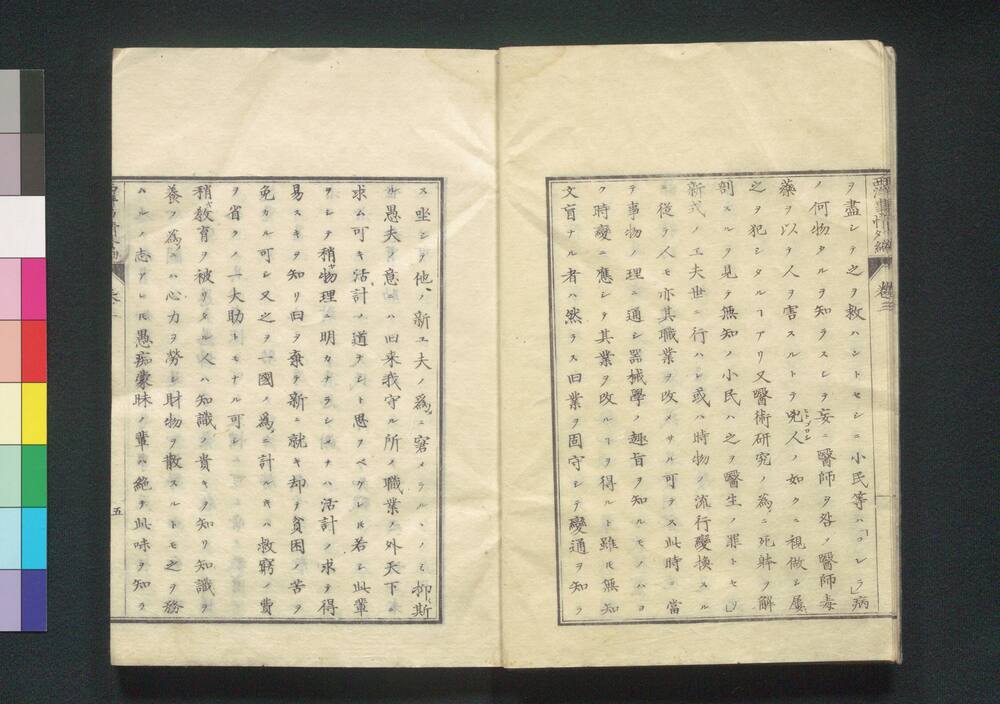 西洋事情外編 卷三
ヲ盡シテ之ヲ救ハントセシニ小民等ハ「コレラ」病
ノ何物タルヲ知ラスシテ妄ニ醫師ヲ咎メ醫師毒
藥ヲ以テ人ヲ害スルトテ兇人ノ如クニ視做シ屢
之ヲ犯シタルヿアリ又醫術研究ノ爲ニ死躰ヲ解
剖スルヲ見テ無知ノ小民ハ之ヲ醫生ノ罪トセリ」
新式ノ工夫世ニ行ハレ或ハ時物ノ流行變換スル
ニ從テ人モ亦其職業ヲ改メサル可ラス此時ニ當
テ事物ノ理ニ通シ器械學ノ趣旨ヲ知ルモノハヨ
ク時變ニ應シテ其業ヲ改ルヿヲ得ルト雖モ無知
文盲ナル者ハ然ラス旧業ヲ固守シテ變通ヲ知ラ
ス坐シテ他ノ新工夫ノ爲ニ窘メラルヽノミ抑斯
ル愚夫ノ意ニハ旧来我守ル所ノ職業ノ外天下ニ
求ム可キ活計ノ道ナシト思フベケレモ若シ此輩
ヲシテ稍物理ニ明カナラシメナハ活計ノ求メ得
易スキヲ知リ旧ヲ棄テ新ニ就キ却テ貧困ノ苦ヲ
免カル可シ又之ヲ一國ノ爲ニ計ルキハ救窮ノ費
ヲ省クノ一大助トモナル可シ
稍教育ヲ被リタル人ハ知識ノ貴キヲ知リ知識ヲ
養ノ爲ニハ心力ヲ勞シ財物ヲ散スルトモ之ヲ務
ハルノ志アレモ愚痴蒙昧ノ輩ハ絶テ此味ヲ知ラ
五